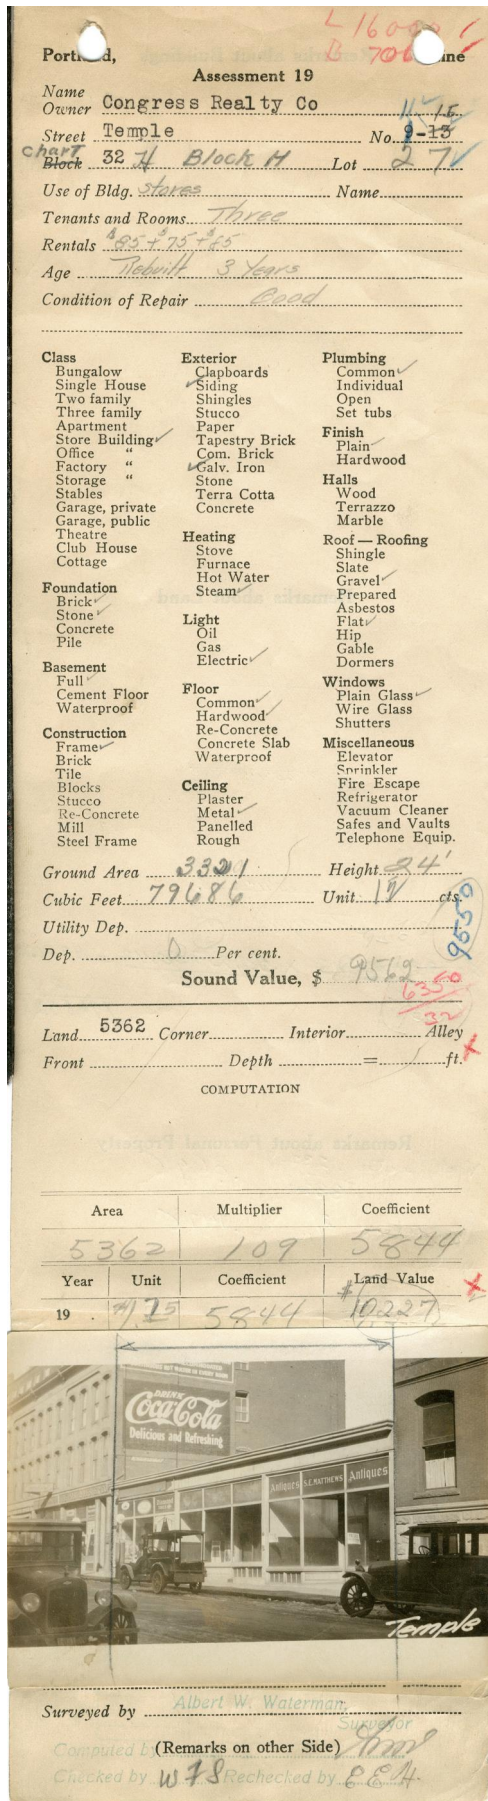 L 16000
B 706
Portland, Maine
Assessment 19
Name
Owner Congress Realty Co
11 15
Street Temple No. 9-13
chart
Block 32 H Block H Lot 27
Use of Bldg. stores Name
Tenants and Rooms Three
Rentals $85 + $75 + $65
Age Rebuilt 3 Years
Condition of Repair Good
Class
Bungalow
Single House
Two family
Three family
Apartment
Store Building ✓
Office "
Factory "
Storage "
Stables
Garage, private
Garage, public
Theatre
Club House
Cottage
Foundation
Brick ✓
Stone ✓
Concrete
Pile
Basement
Full ✓
Cement Floor
Waterproof
Construction
Frame ✓
Brick
Tile
Blocks
Stucco
Re-Concrete
Mill
Steel Frame
Exterior
Clapboards
✓ Siding
Shingles
Stucco
Paper
Tapestry Brick
Com. Brick
✓ Galv. Iron
Stone
Terra Cotta
Concrete
Heating
Stove
Furnace
Hot Water
Steam ✓
Light
Oil
Gas
Electric ✓
Floor
Common ✓
Hardwood ✓
Re-Concrete
Concrete Slab
Waterproof
Ceiling
Plaster
Metal ✓
Panelled
Rough
Plumbing
Common ✓
Individual
Open
Set tubs
Finish
Plain ✓
Hardwood
Halls
Wood
Terrazzo
Marble
Roof — Roofing
Shingle
Slate
Gravel ✓
Prepared
Asbestos
Flat ✓
Hip
Gable
Dormers
Windows
Plain Glass ✓
Wire Glass
Shutters
Miscellaneous
Elevator
Sprinkler
Fire Escape
Refrigerator
Vacuum Cleaner
Safes and Vaults
Telephone Equip.
Ground Area 3321 Height 24'
Cubic Feet 79686 Unit 12 cts.
Utility Dep.
9550
Dep. 0 Per cent.
Sound Value, $ 9562
6350
32
Land 5362 Corner Interior Alley
Front Depth = ft.
COMPUTATION
Area Multiplier Coefficient
5362 109 5844
Year Unit Coefficient Land Value
19 1.75 5844 $10227
DRINK
Coca-Cola
Delicious and Refreshing
Antiques S.E. MATTHEWS Antiques
Temple
Surveyed by Albert W. Waterman,
Surveyor
(Remarks on other Side)
Computed by
Checked by W F S Rechecked by E E H.